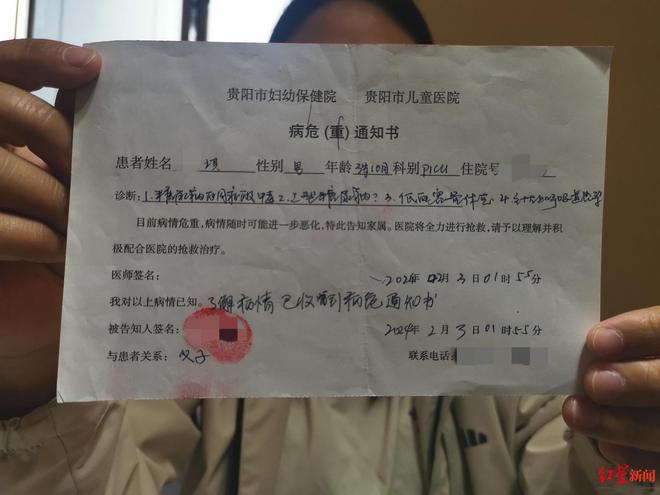 贵阳市妇幼保健院 贵阳市儿童医院
病危(重)通知书
患者姓名 琪 性别 男 年龄 3岁10月 科别 PICU 住院号
诊断:1.糖尿病酮症酸中毒 2. 1型糖尿病? 3.低血容量休克 4.急性上呼吸道感染
目前病情危重,病情随时可能进一步恶化,特此告知家属。医院将全力进行抢救,请予以理解并积
极配合医院的抢救治疗。
医师签名: 2024年 02月 3日 01时 55分
我对以上病情已知。了解病情 已收到病危通知书
被告知人签名: 2024年 2月 3日 01时 55分
与患者关系:父子 联系电话:
红星新闻